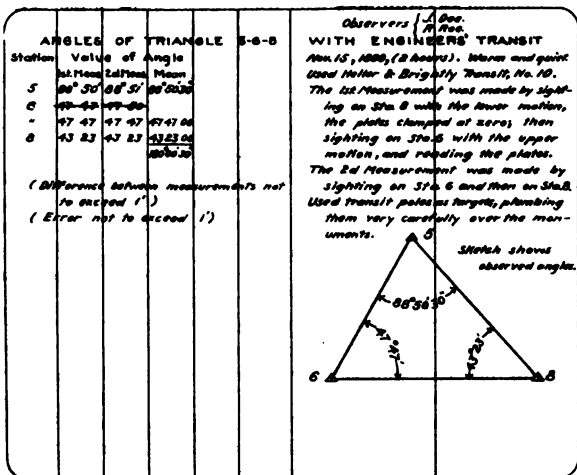 ANGLES OF TRIANGLE 5-6-8
Station Value of Angle
1st. Meas. 2d Meas. Mean
5 88° 50' 88° 51' 88°50'30"
6 47 47 47 80
" 47 47 47 47 47 47 00
8 43 23 43 23 43 23 00
180°00'30"
(Difference between measurements not
to exceed 1')
(Error not to exceed 1')
Observers { J. Doe.
R. Roe.
WITH ENGINEERS' TRANSIT
Nov. 15, (2 hours). Warm and quiet.
Used Heller & Brightly Transit, No. 10.
The 1st Measurement was made by sight-
ing on Sta. 8 with the lower motion,
the plates clamped at zero; then
sighting on Sta. 6 with the upper
motion, and reading the plates.
The 2d Measurement was made by
sighting on Sta. 6 and then on Sta. 8.
Used transit poles as targets, plumbing
them very carefully over the mon-
uments.
5
Sketch shows
observed angles.
88°50'30"
47°47'
43°23'
6
8